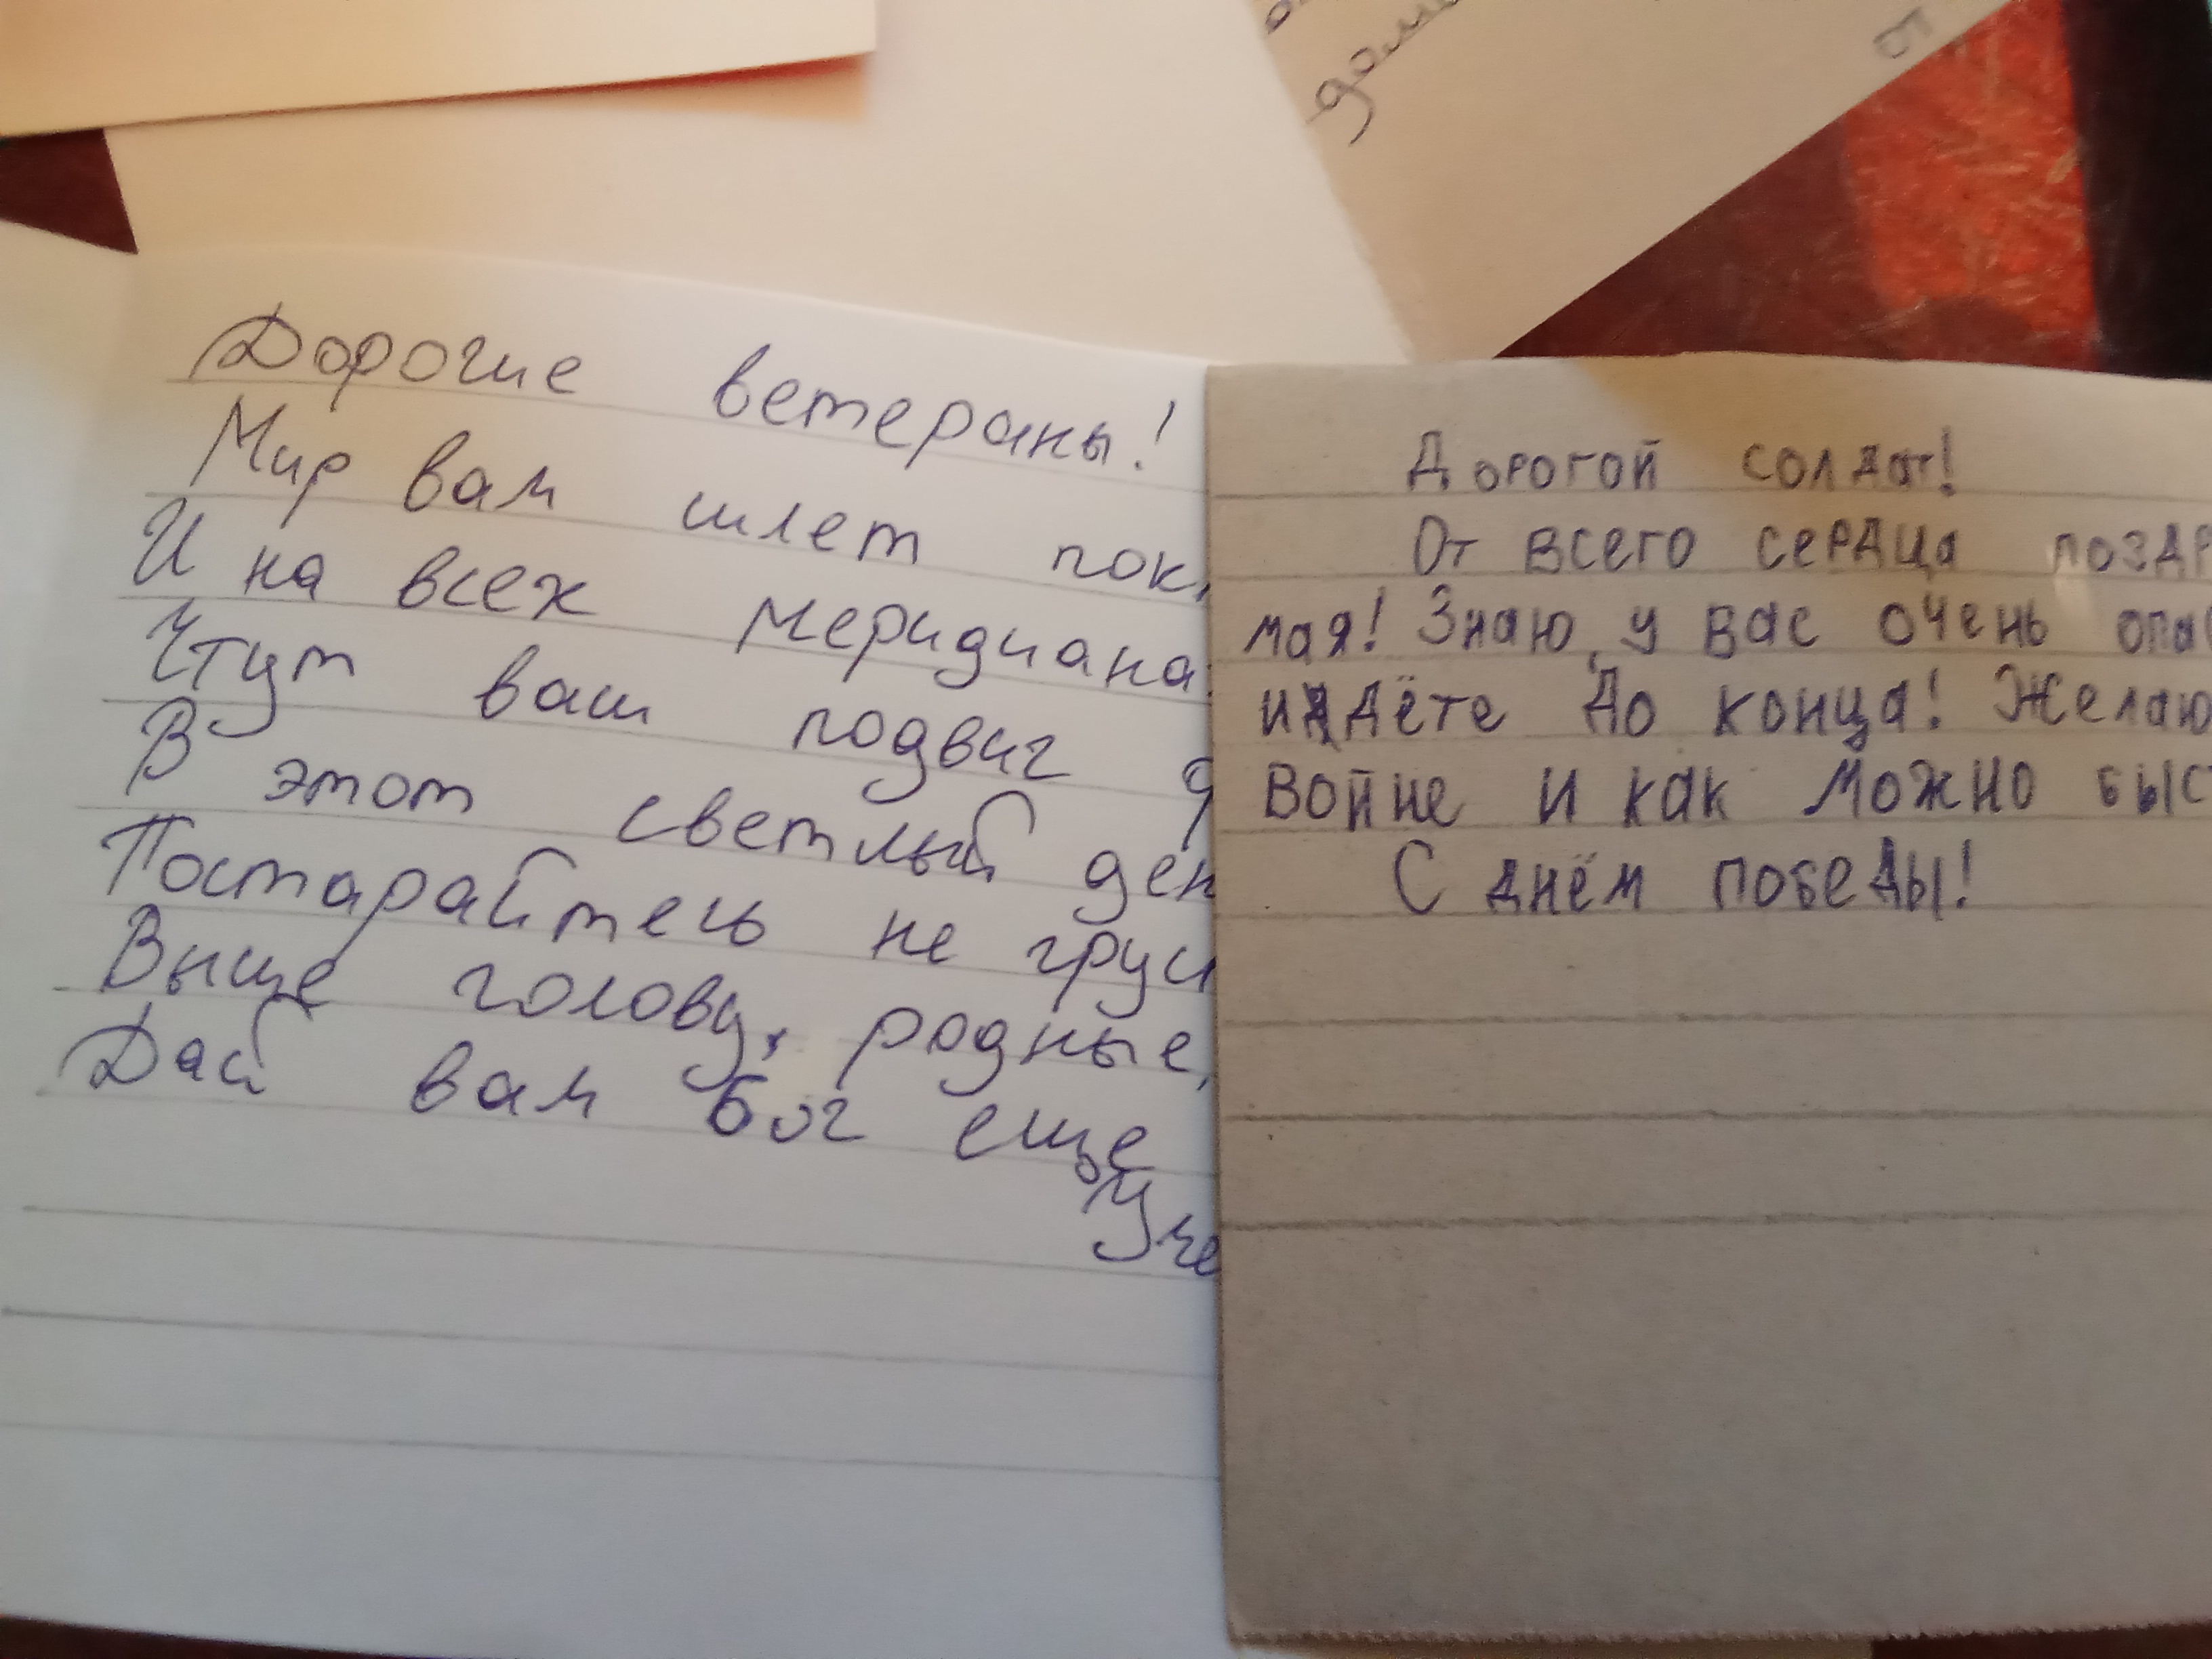 Дорогие ветераны!
Мир вам шлет
И на всех
Чтут ваш подвиг
В этот светлый
Постарайтесь не
Выше голову, родные,
Дай вам Бог еще
Дорогой солдат!
От всего сердца
мая! Знаю, у вас очень
идёте до конца! Желаю
войне и как можно
С днём победы!
от